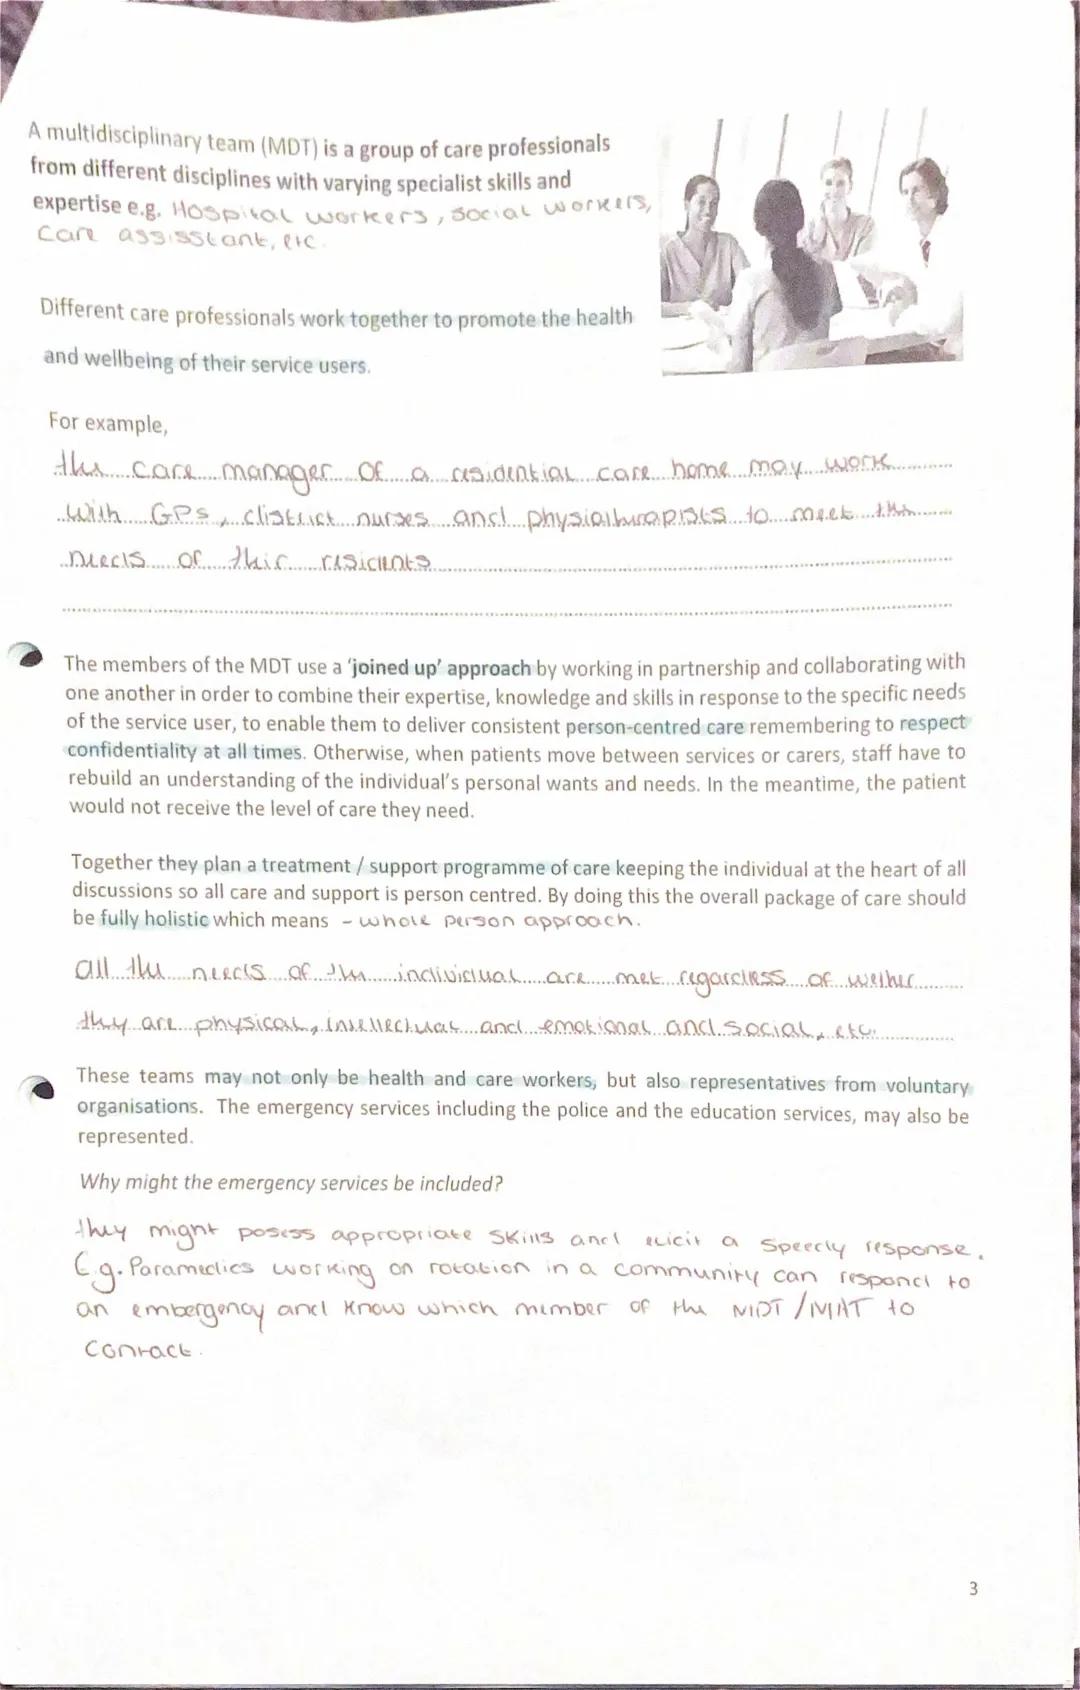 A multidisciplinary team (MDT) is a group of care professionals
from different disciplines with varying specialist skills and
expertise e.g. Hospital workers, social workers,
Care assisstant, etc.
Different care professionals work together to promote the health
and wellbeing of their service users.
For example,
the care manager of a residential care home may work
with GPs, district nurses and physiotherapists to meet the
needs of their residents
The members of the MDT use a 'joined up' approach by working in partnership and collaborating with
one another in order to combine their expertise, knowledge and skills in response to the specific needs
of the service user, to enable them to deliver consistent person-centred care remembering to respect
confidentiality at all times. Otherwise, when patients move between services or carers, staff have to
rebuild an understanding of the individual's personal wants and needs. In the meantime, the patient
would not receive the level of care they need.
Together they plan a treatment / support programme of care keeping the individual at the heart of all
discussions so all care and support is person centred. By doing this the overall package of care should
be fully holistic which means - whole person approach.
all the needs of the individual are met regardless of wether
they are physical, intellectual and emotional and social, etc.
These teams may not only be health and care workers, but also representatives from voluntary
organisations. The emergency services including the police and the education services, may also be
represented.
Why might the emergency services be included?
they might posess appropriate skills and elicit a speedy response.
E.g. Paramedics working on rotation in a community can respond to
an embergency and know which member of the MDT/MAT to
contact.
3